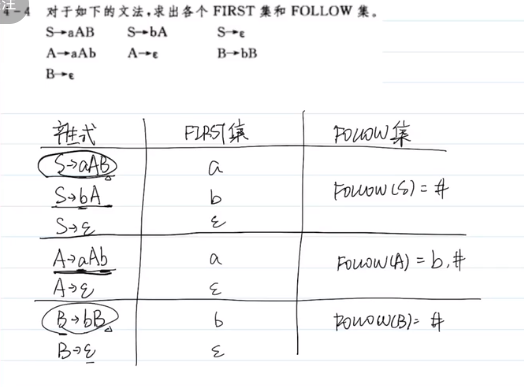 注
4-4 对于如下的文法,求出各个 FIRST 集和 FOLLOW 集。
S→aAB S→bA S→ε
A→aAb A→ε B→bB
B→ε
产生式 FIRST集 FOLLOW集
S→aAB a
FOLLOW(S)=#
S→bA b
S→ε ε
A→aAb a FOLLOW(A)=b,#
A→ε ε
B→bB b FOLLOW(B)=#
B→ε ε